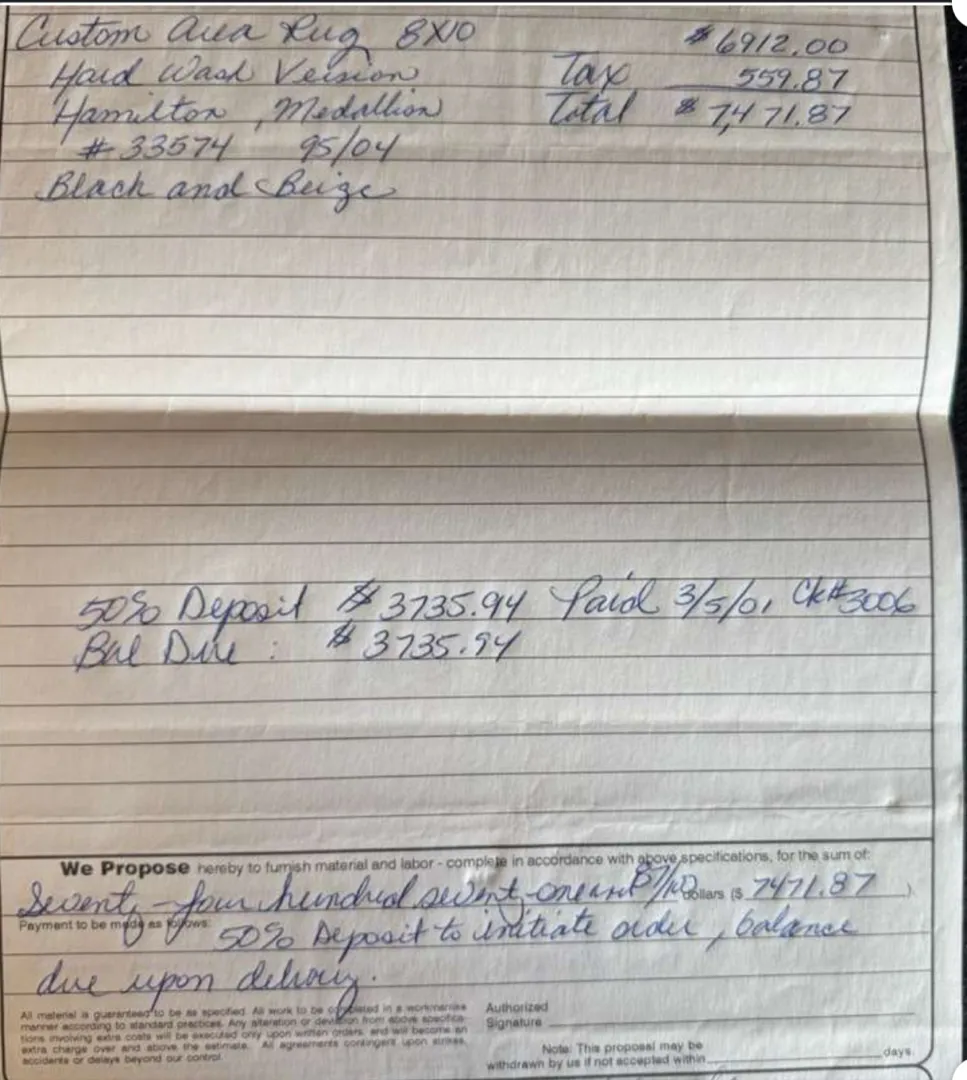 Custom Area Rug 8X10 $6912.00
Hard Wash Version Tax 559.87
Hamilton, Medallion Total $7,471.87
# 33574 95/04
Black and Beige
50% Deposit $3735.94 Paid 3/5/01 Ck#3006
Bal Due : $3735.94
We Propose hereby to furnish material and labor - complete in accordance with above specifications, for the sum of:
Seventy-four hundred seventy-one and 87/100 dollars ($ 7471.87 ).
Payment to be made as follows:
50% Deposit to initiate order, balance
due upon delivery.
All material is guaranteed to be as specified. All work to be completed in a workmanlike
manner according to standard practices. Any alteration or deviation from above specifica-
tions involving extra costs will be executed only upon written orders, and will become an
extra charge over and above the estimate. All agreements contingent upon strikes,
accidents or delays beyond our control.
Authorized
Signature
Note: This proposal may be
withdrawn by us if not accepted within days.